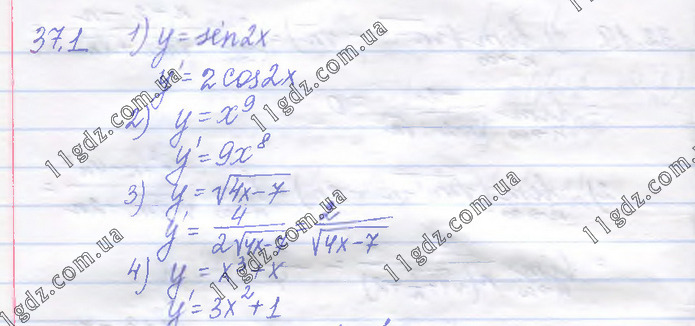 37.1 1) y = sin2x
y' = 2cos2x
2) y = x⁹
y' = 9x⁸
3) y = √(4x-7)
y' = 4/(2√(4x-7)) = 2/√(4x-7)
4) y = x³+x
y' = 3x²+1
11gdz.com.ua
11gdz.com.ua
11gdz.com.ua
11gdz.com.ua
11gdz.com.ua
11gdz.com.ua
11gdz.com.ua